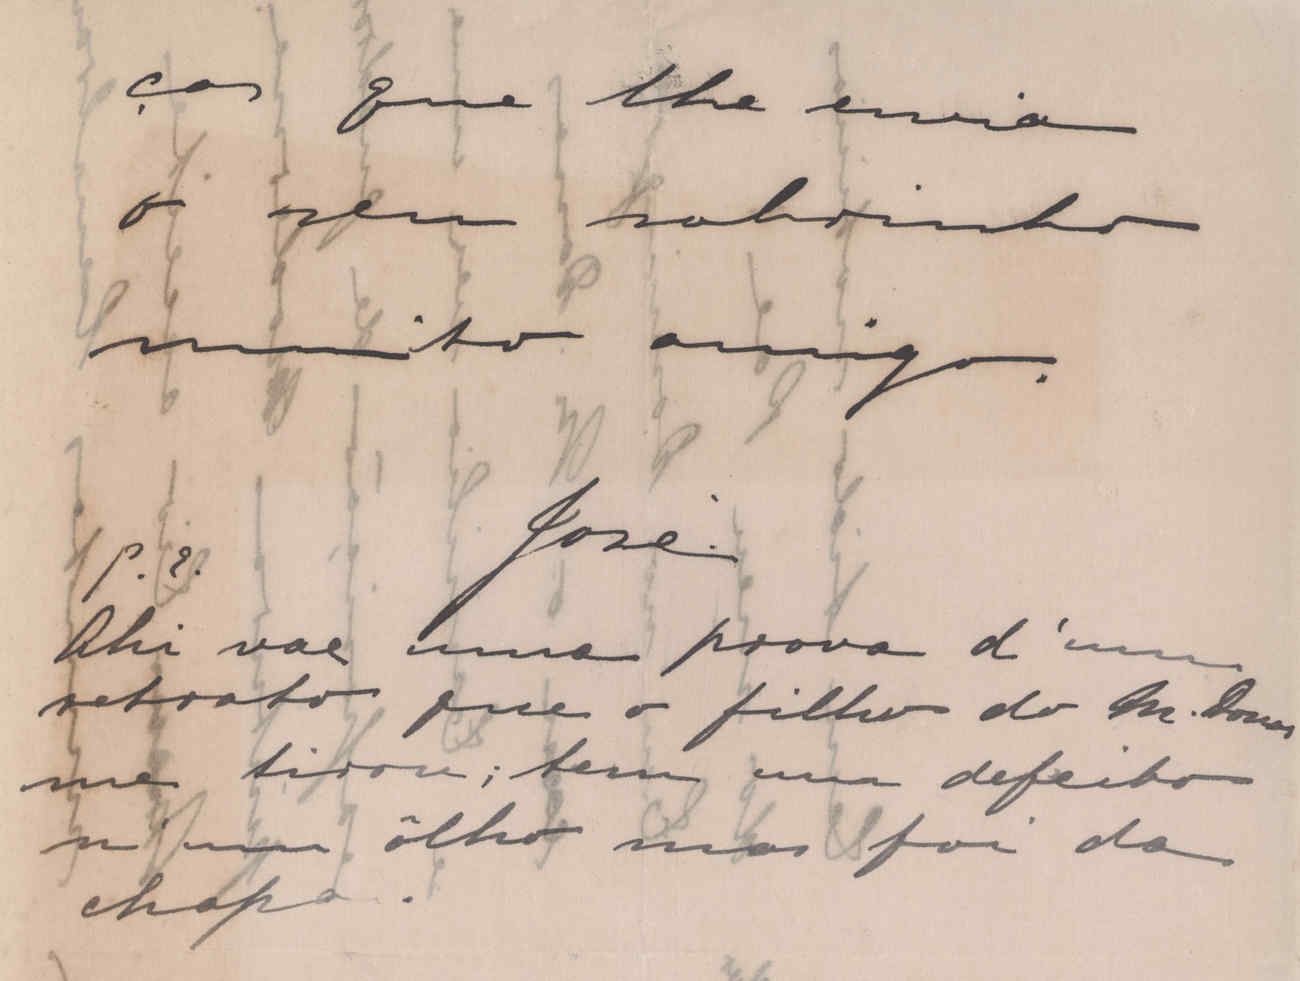 ças que lhe envia
o seu sobrinho
muito amigo.
José.
P. S.
Ahi vae uma prova d'um
retrato que o filho do M.
me tirou; tem um defeito
n'um ôlho mas foi da
chapa.